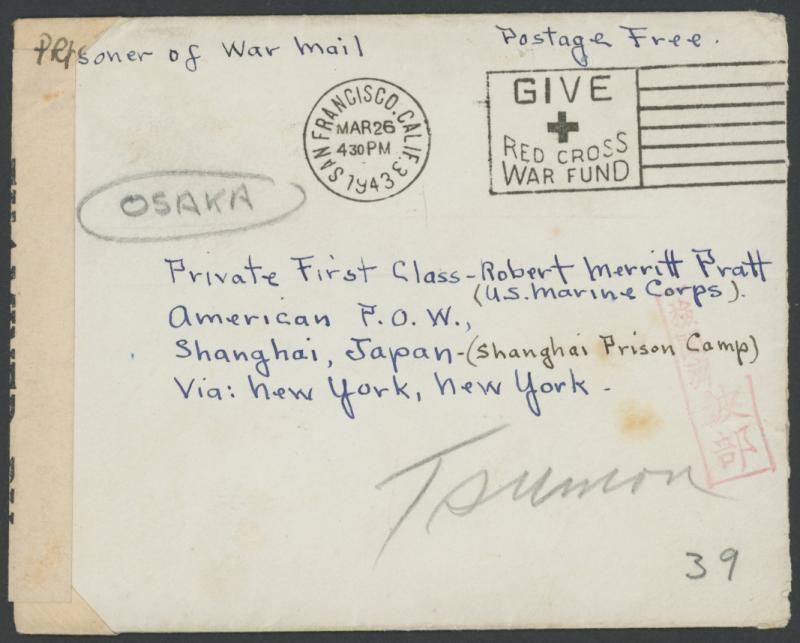 Prisoner of War Mail
Postage Free.
SAN FRANCISCO, CALIF. 3
MAR 26
4 30 PM
1943
GIVE
RED CROSS
WAR FUND
OSAKA
Private First Class - Robert Merritt Pratt
(U.S. Marine Corps).
American P.O.W.,
Shanghai, Japan - (Shanghai Prison Camp)
Via: New York, New York -
波部
Tsumori
39